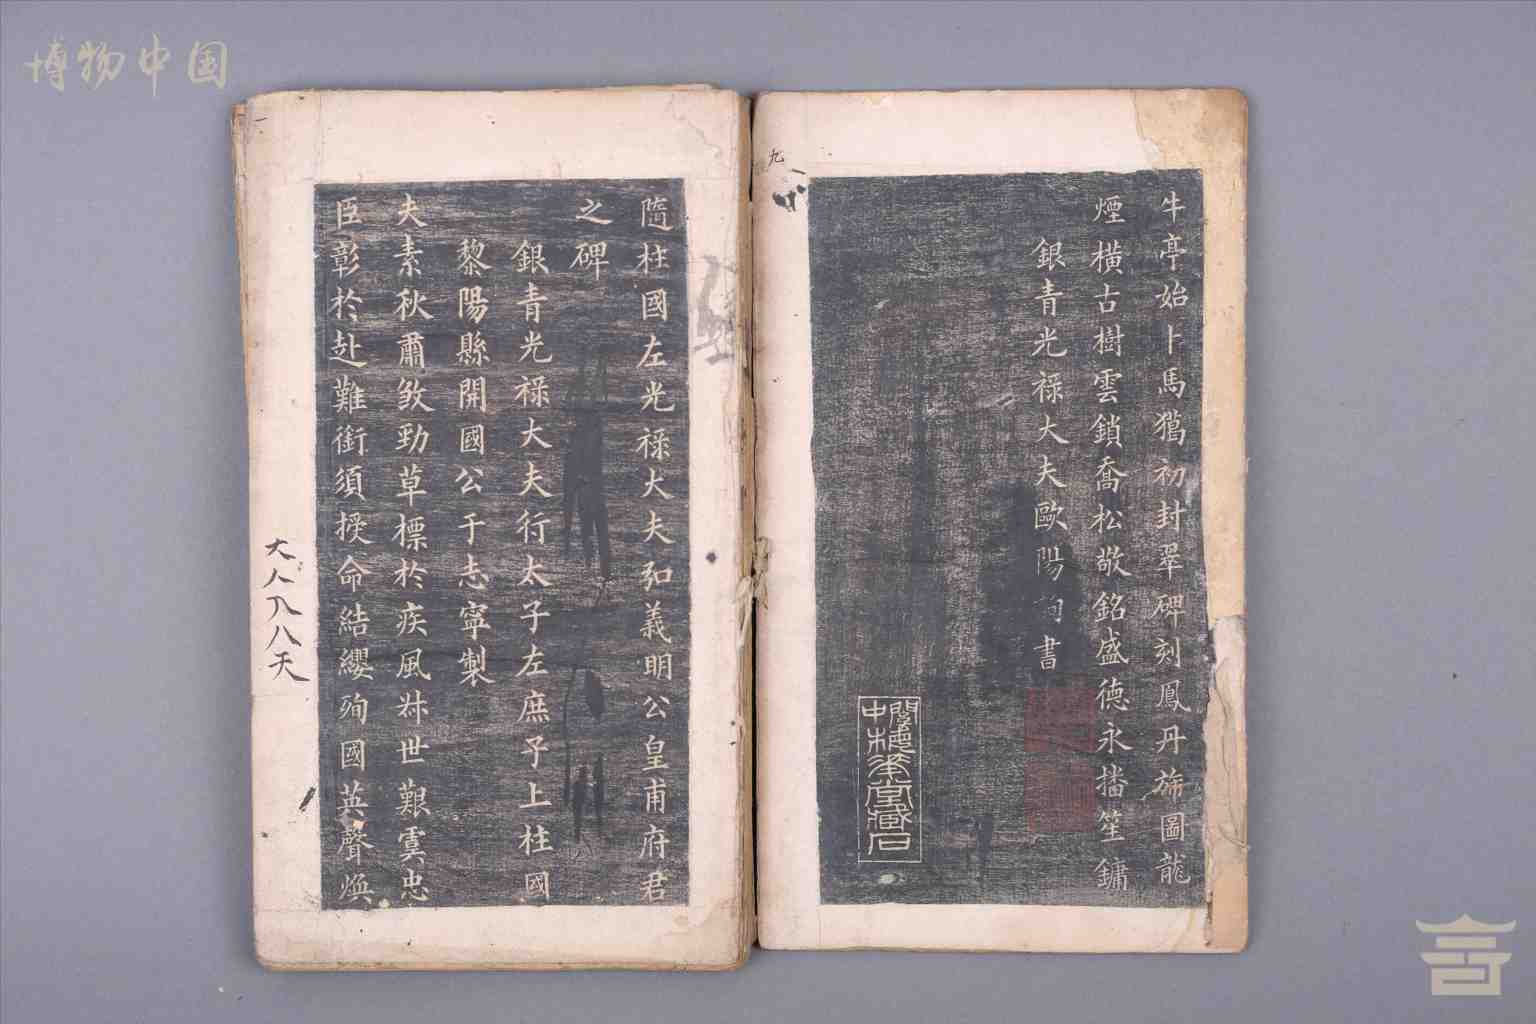 博物中国
牛亭始卜馬獦初封翠碑刻鳳丹旐圖龍
煙橫古樹雲鎖喬松敬銘盛德永播笙鏞
銀青光祿大夫歐陽詢書
九
隨柱國左光祿大夫弘義明公皇甫府君
之碑
銀青光祿大夫行太子左庶子上柱國
黎陽縣開國公于志寧製
夫素秋肅煞勁草標於疾風叔世艱虞忠
臣彰於赴難銜須授命結纓殉國英聲煥